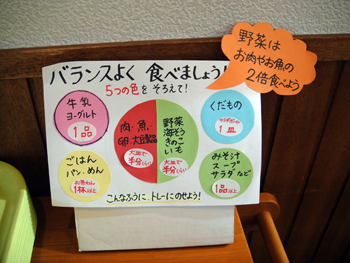 野菜は
お肉やお魚の
2倍食べよう
バランスよく 食べましょう!
5つの色を そろえて!
牛乳
ヨーグルト
1品
肉・魚
卵・大豆製品
大皿で
半分くらい
野菜
海そう
きのこ
いも
大皿で
半分くらい
くだもの
1皿
ごはん
パン・めん
お茶わん
1杯以上
みそ汁
スープ
サラダなど
1品以上
こんなふうに、トレーにのせよう!